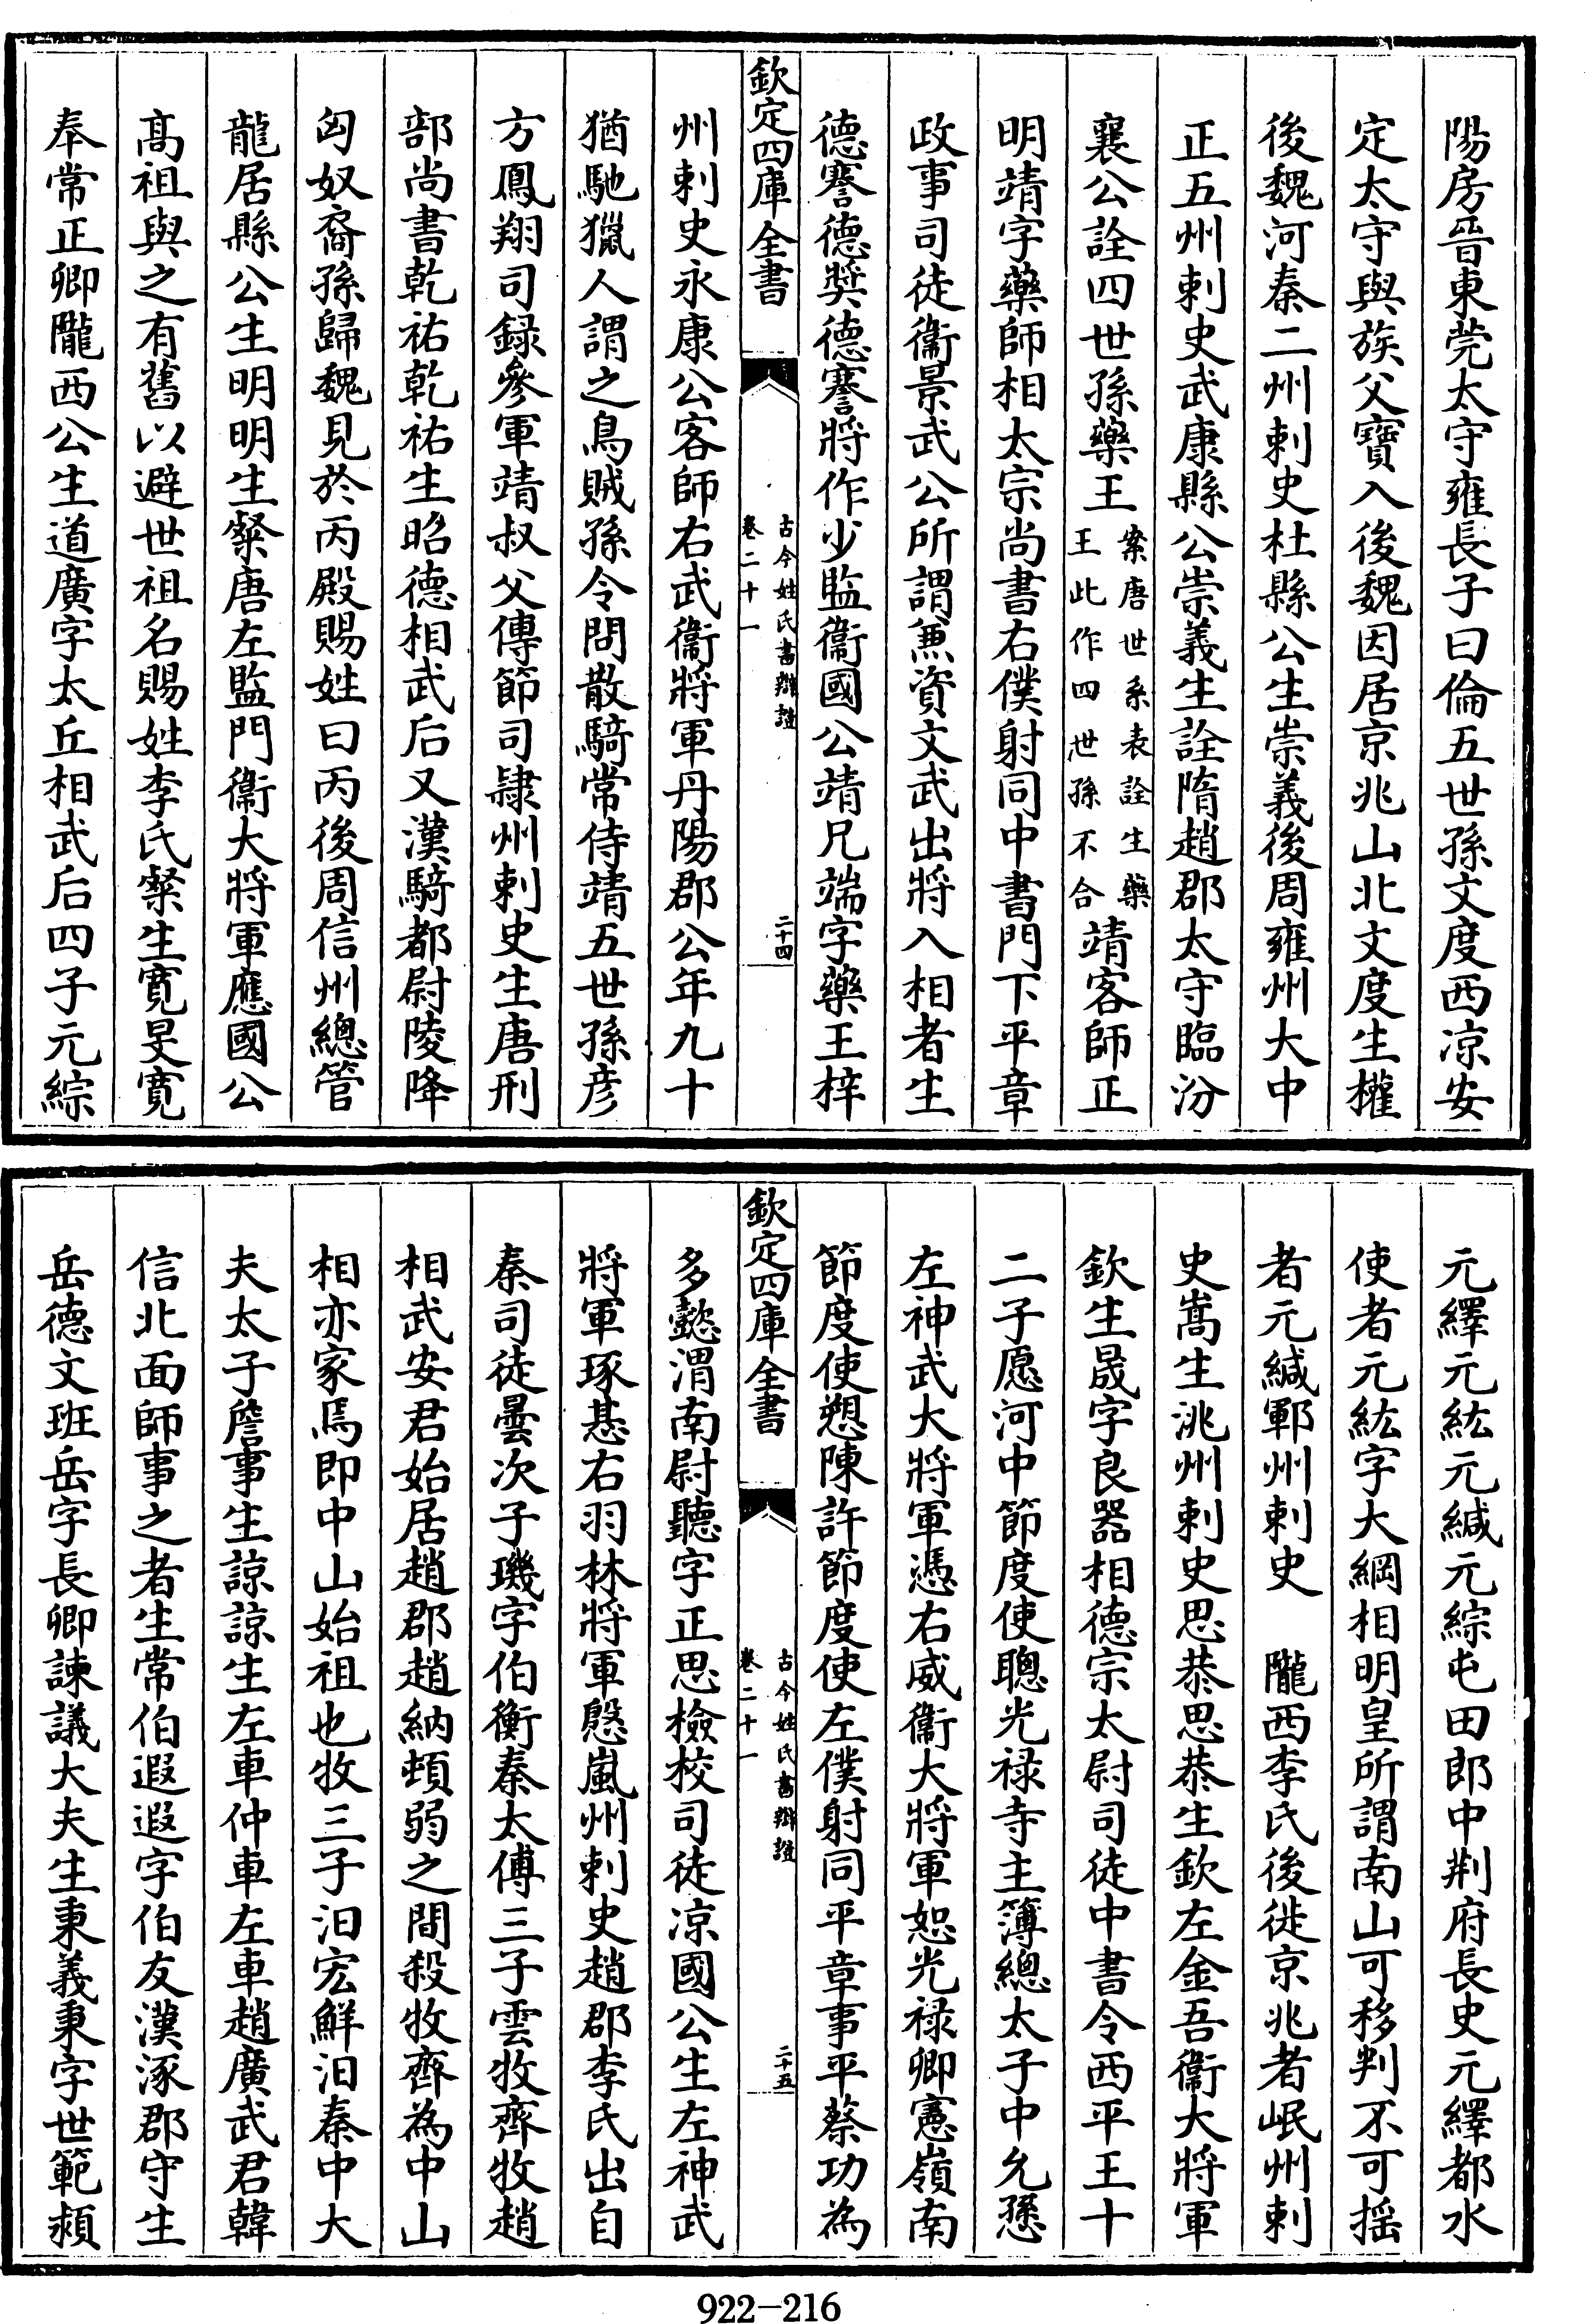 陽房晉東莞太守雍長子曰倫五世孫文度西凉安
定太守與族父寶入後魏因居京兆山北文度生權
後魏河秦二州刺史杜縣公生崇義後周雍州大中
正五州刺史武康縣公崇義生詮隋趙郡太守臨汾
襄公詮四世孫藥王案唐世系表詮生藥王此作四世孫不合靖客師正
明靖字藥師相太宗尚書右僕射同中書門下平章
政事司徒衞景武公所謂兼資文武出將入相者生
德謇德奬德謇將作少監衞國公靖兄端字藥王梓
欽定四庫全書
古今姓氏書辯證
卷二十一
二十四
州刺史永康公客師右武衞將軍丹陽郡公年九十
猶馳獵人謂之鳥賊孫令問散騎常侍靖五世孫彦
方鳳翔司録參軍靖叔父傳節司隷州刺史生唐刑
部尚書乾祐乾祐生昭德相武后又漢騎都尉陵降
匈奴裔孫歸魏見於丙殿賜姓曰丙後周信州總管
龍居縣公生明明生粲唐左監門衞大將軍應國公
髙祖與之有舊以避世祖名賜姓李氏粲生寛旻寛
奉常正卿隴西公生道廣字太丘相武后四子元綜
元繹元紘元緘元綜屯田郎中荆府長史元繹都水
使者元紘字大綱相明皇所謂南山可移判不可揺
者元緘鄆州刺史　隴西李氏後徙京兆者岷州刺
史嵩生洮州刺史思恭思恭生欽左金吾衞大將軍
欽生晟字良器相德宗太尉司徒中書令西平王十
二子愿河中節度使聰光禄寺主簿總太子中允愻
左神武大將軍憑右威衞大將軍恕光禄卿憲嶺南
節度使愬陳許節度使左僕射同平章事平蔡功為
欽定四庫全書
古今姓氏書辯證
卷二十一
二十五
多懿渭南尉聽字正思檢校司徒凉國公生左神武
將軍琢惎右羽林將軍慇嵐州刺史趙郡李氏出自
秦司徒曇次子璣字伯衡秦太傅三子雲牧齊牧趙
相武安君始居趙郡趙納頓弱之間殺牧齊為中山
相亦家焉即中山始祖也牧三子汨宏鮮汨秦中大
夫太子詹事生諒諒生左車仲車左車趙廣武君韓
信北面師事之者生常伯遐遐字伯友漢涿郡守生
岳德文班岳字長卿諫議大夫生秉義秉字世範潁
922-216